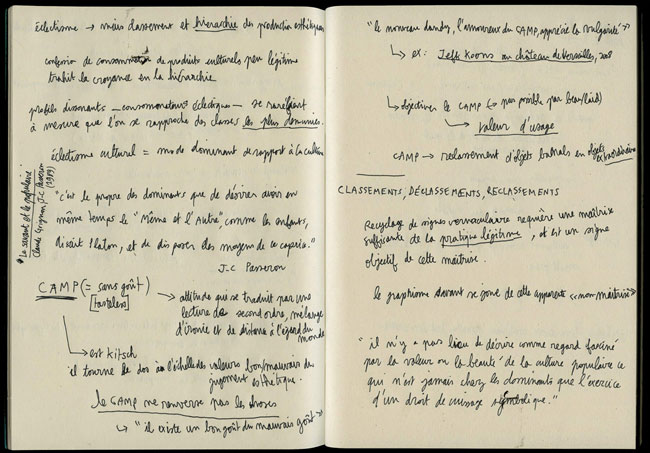 éclectisme → mieux classement et hiérarchie des production esthétiques
confession de consommation de produits culturels peu légitime
trahit la croyance en la hiérarchie
profils dissonants – consommateurs éclectiques – se raréfient
à mesure que l'on se rapproche des classes les plus dominées.
éclectisme culturel = mode dominant de rapport à la culture
* Le savant et le populaire
Claude Grignon, J-C Passeron
(1989)
"c'est le propre des dominants que de désirer avoir en
même temps le "Même et l'Autre", comme les enfants,
disait Platon, et de disposer des moyens de ce caprice."
J.C Passeron
CAMP (= sans goût)
[tasteless]
→ attitude qui se traduit par une
lecture de second ordre, mélange
d'ironie et de distance à l'égard du
monde
→ est kitsch
il tourne le dos à l'échelle des valeurs bon/mauvais du
jugement esthétique.
le CAMP ne renverse pas les choses
↳ "il existe un bon goût du mauvais goût"
"le nouveau dandy, l'amoureux du CAMP, apprécie la vulgarité"
↳ ex: Jeff Koons au château de Versailles, 2008
↳ objectiver le CAMP (→ pas possible par
↳ valeur d'usage
CAMP → reclassement d'objets banals en objets extraordinaires
CLASSEMENTS, DÉCLASSEMENTS, RECLASSEMENTS
Recyclage de signes vernaculaire requière une maîtrise
suffisante de la pratique légitime, et est un signe
objectif de cette maîtrise.
le graphisme savant se joue de cette apparente «non maîtrise»
"il n'y a pas lieu de décrire comme regard fasciné
par la valeur ou la beauté de la culture populaire ce
qui n'est jamais chez les dominants que l'exercice
d'un droit de cuissage symbolique."